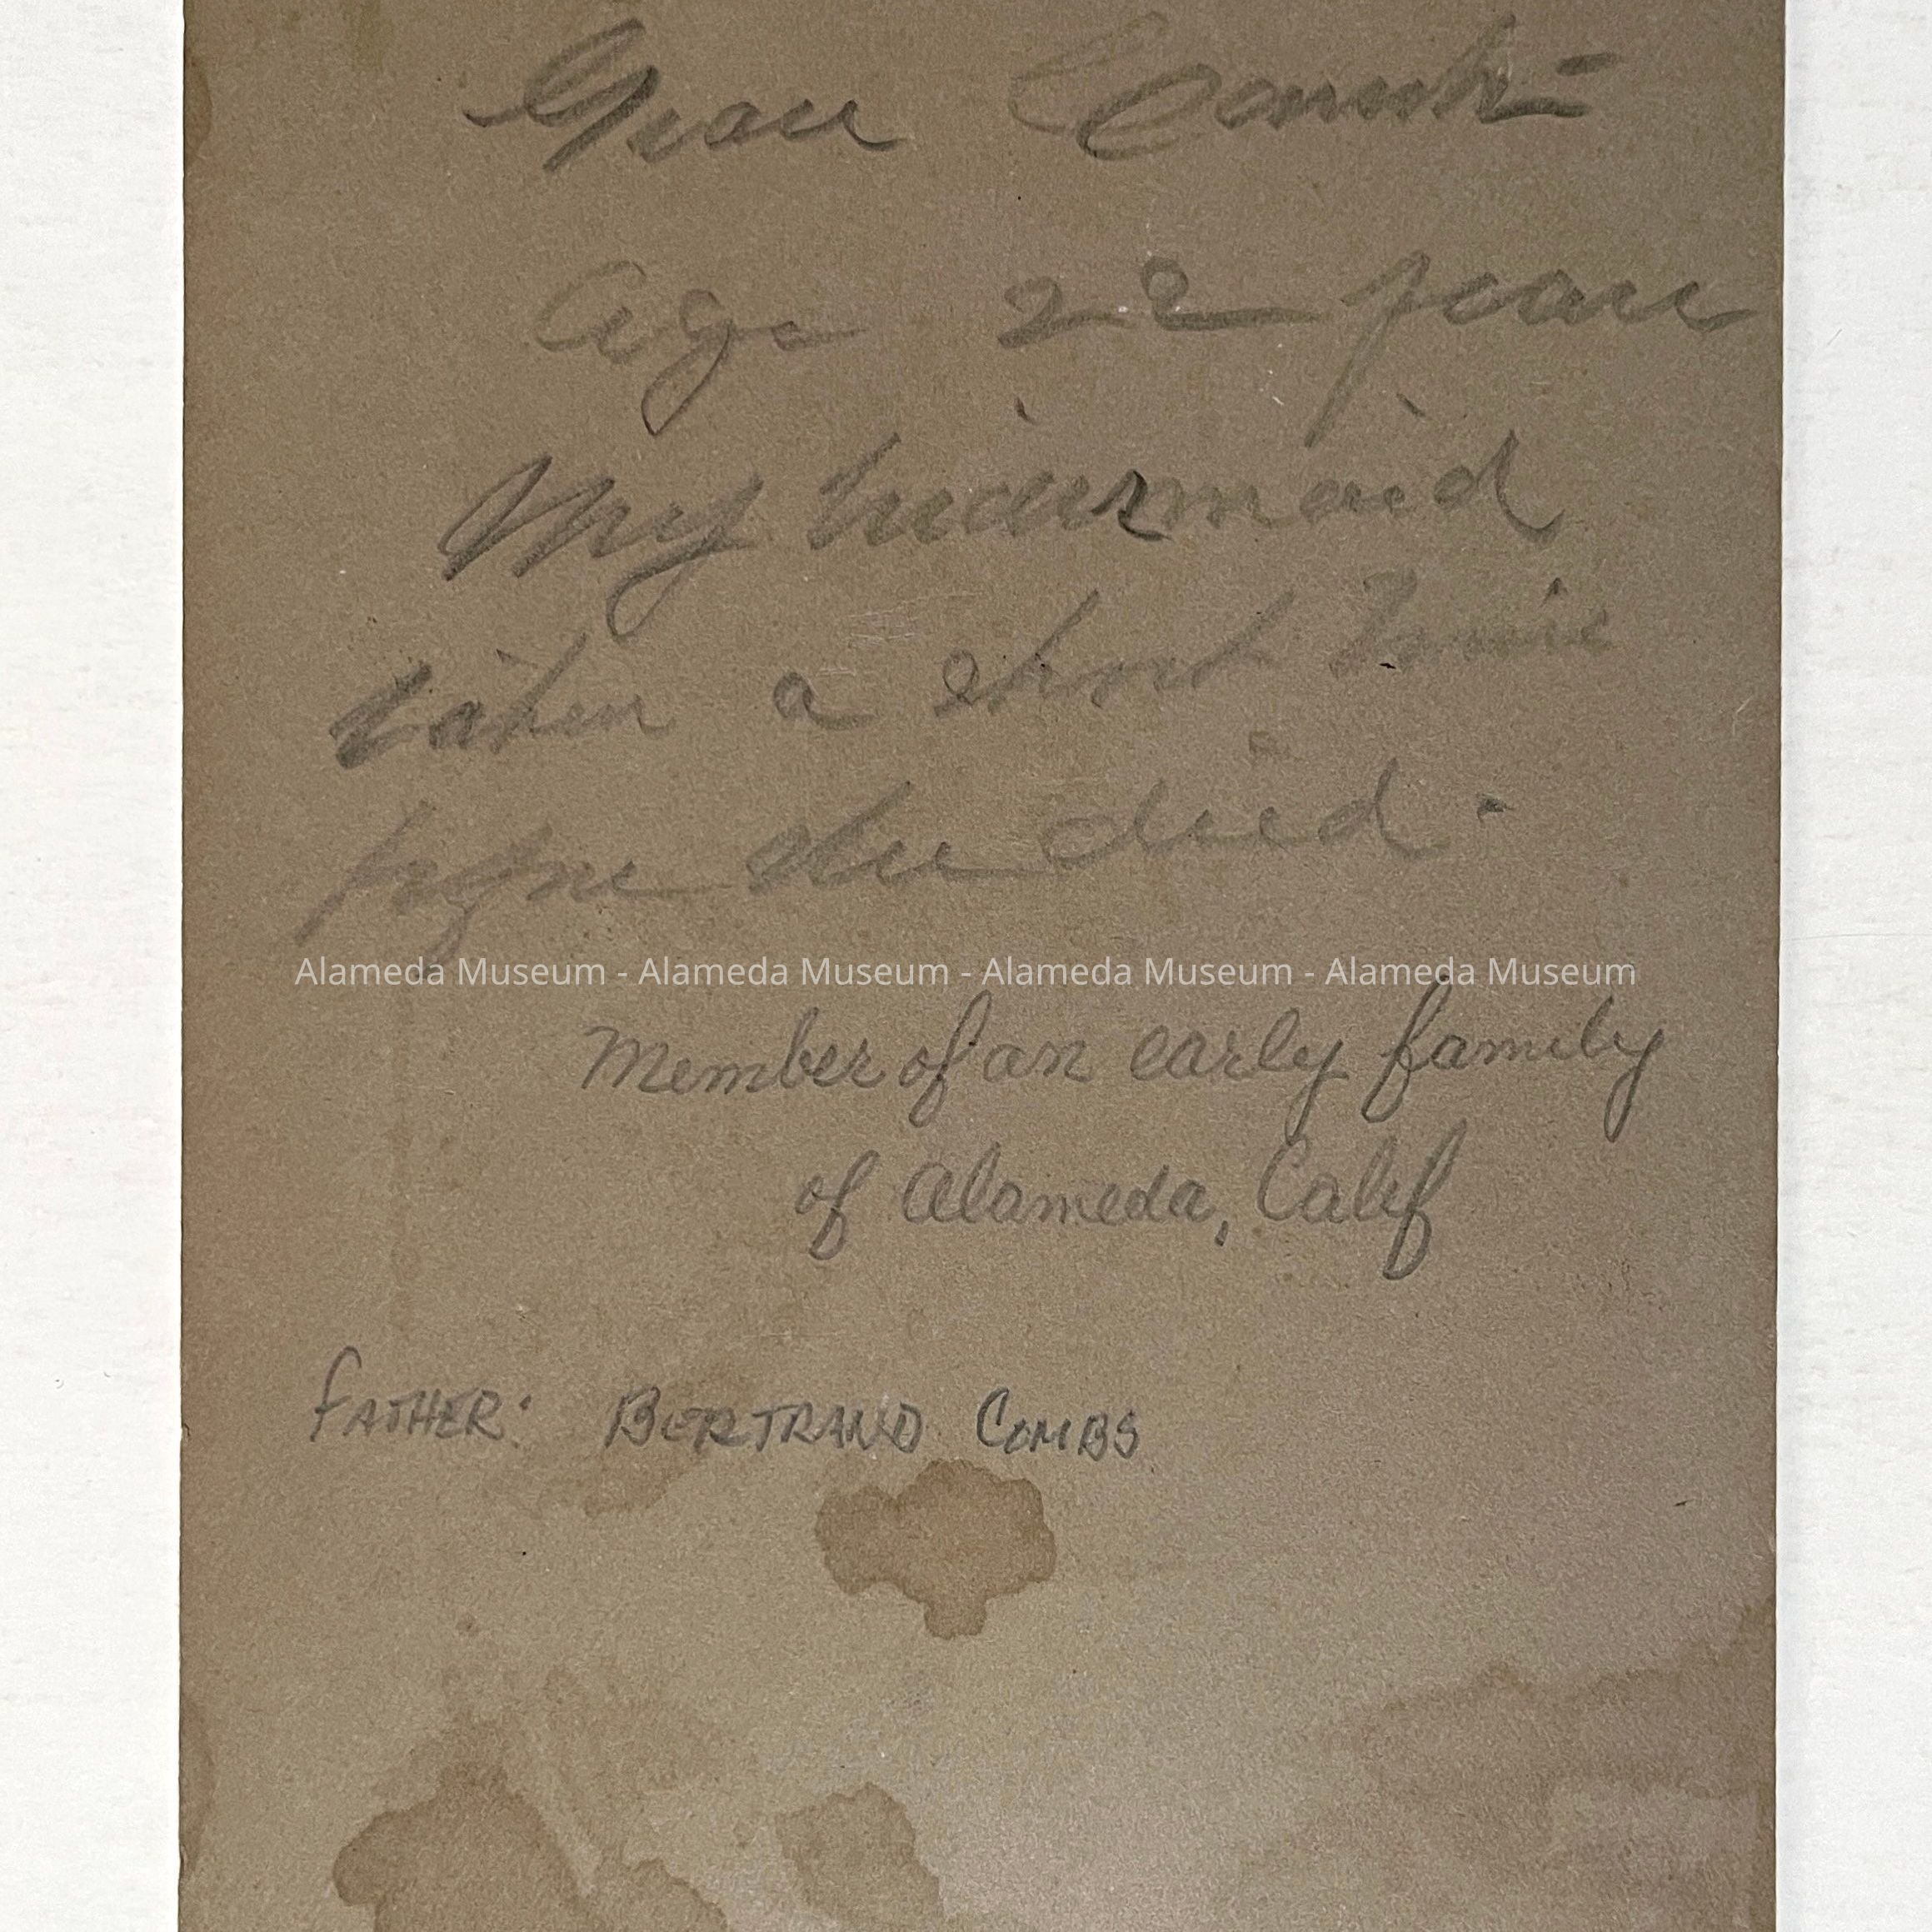 Grace Comb-
Age 22 years
My bridesmaid
taken a short time
before she died.
Alameda Museum - Alameda Museum - Alameda Museum - Alameda Museum
Member of an early family
of Alameda, Calif
FATHER: BERTRAND COMBS